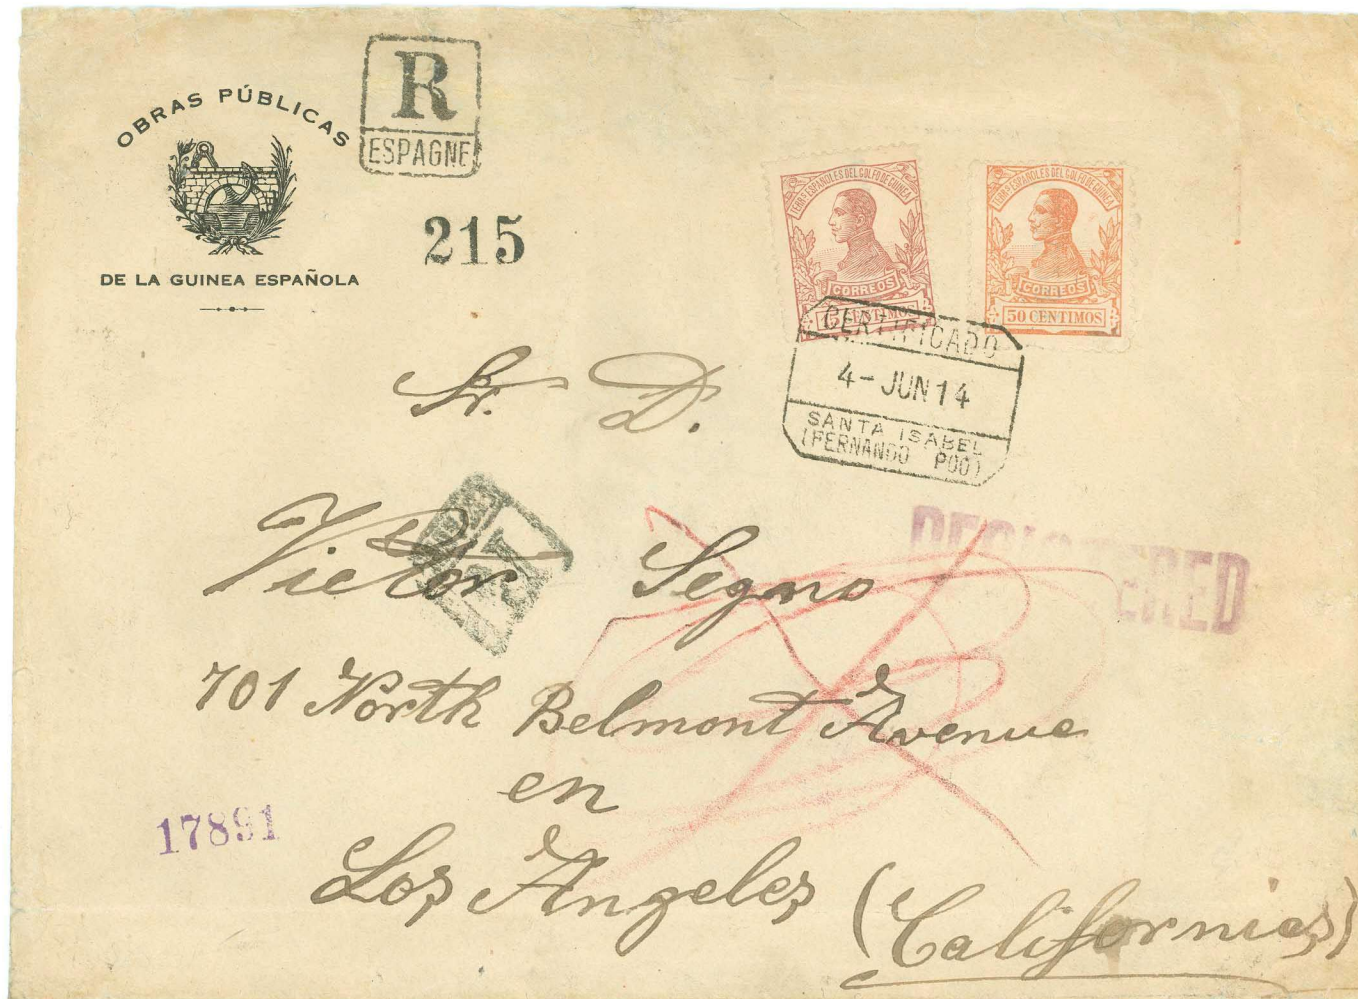 OBRAS PÚBLICAS
DE LA GUINEA ESPAÑOLA
R
ESPAGNE
215
TERRs. ESPAÑOLES DEL GOLFO DE GUINEA
CORREOS
CENTIMOS
TERRs. ESPAÑOLES DEL GOLFO DE GUINEA
CORREOS
50 CENTIMOS
CERTIFICADO
4-JUN 14
SANTA ISABEL
(FERNANDO POO)
Sr. D.
Victor Segno
R
REGISTERED
701 North Belmont Avenue
en
17891
Los Angeles (California)